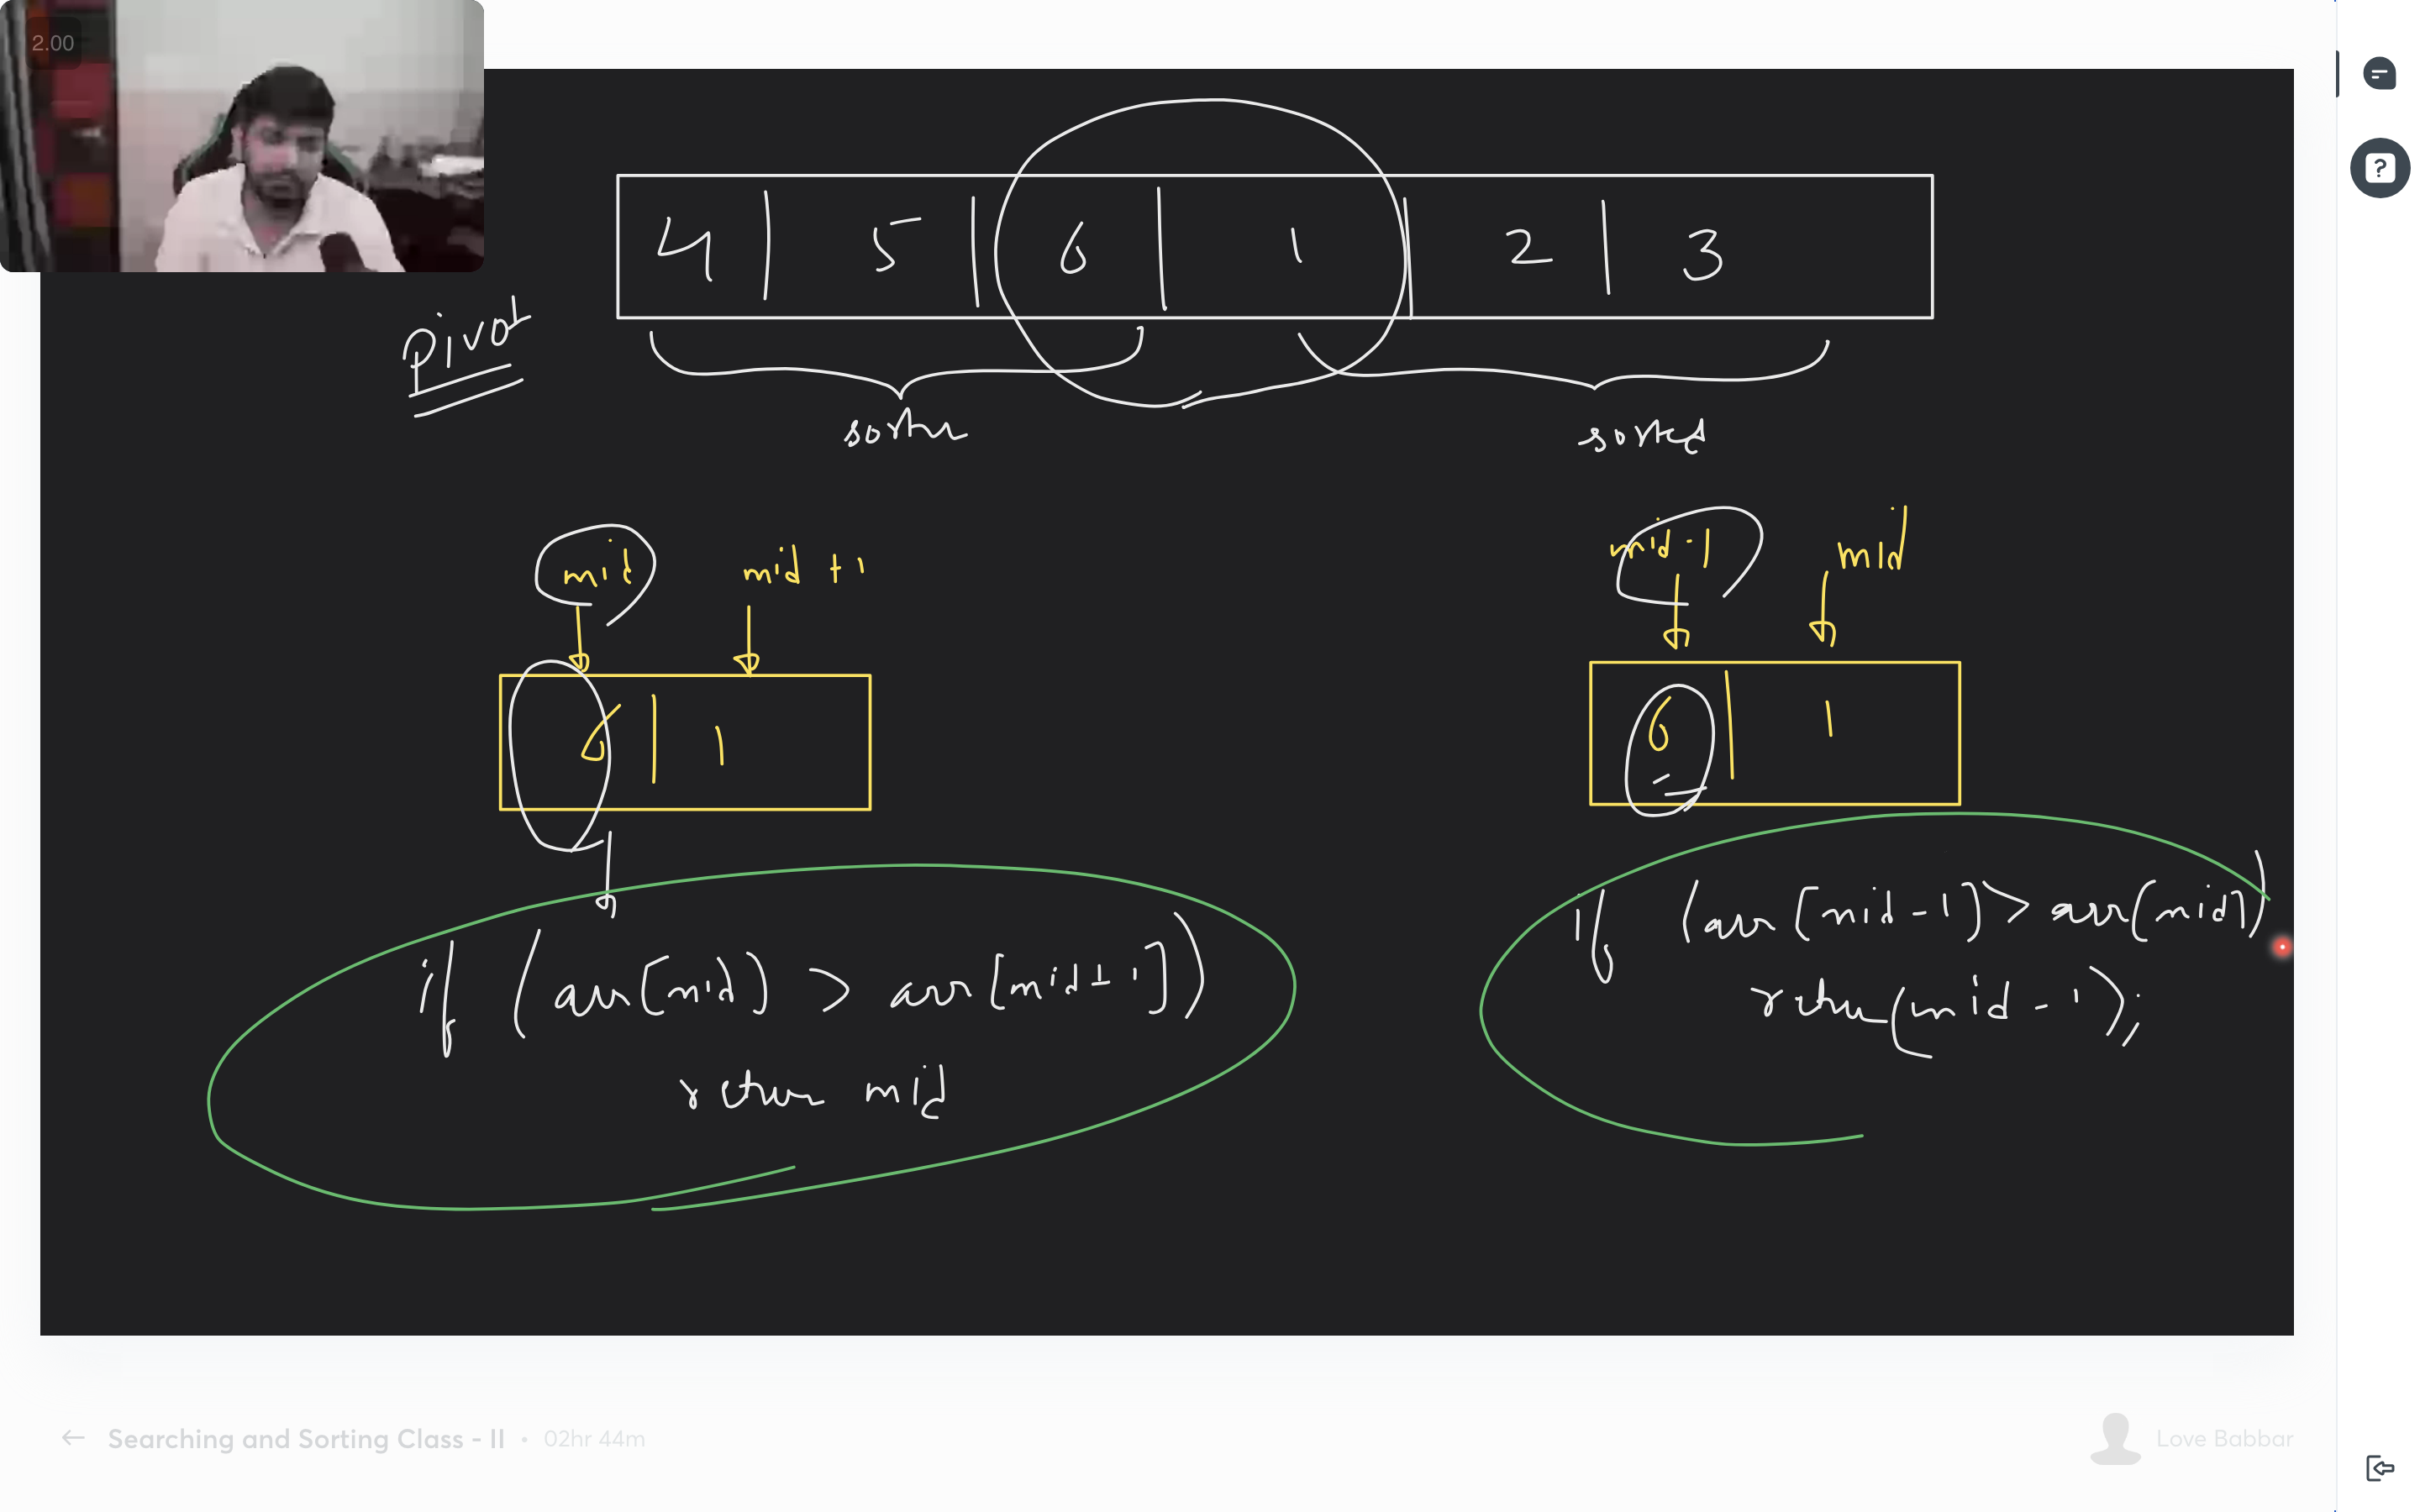 2.00
4 | 5 | 6 | 1 | 2 | 3
Pivot
sorted
mid mid + 1
6 | 1
if (arr[mid] > arr[mid+1])
return mid
mid-1 mid
6 | 1
if (arr[mid-1] > arr[mid])
return (mid-1);
Searching and Sorting Class - II • 02hr 44m
Love Babbar